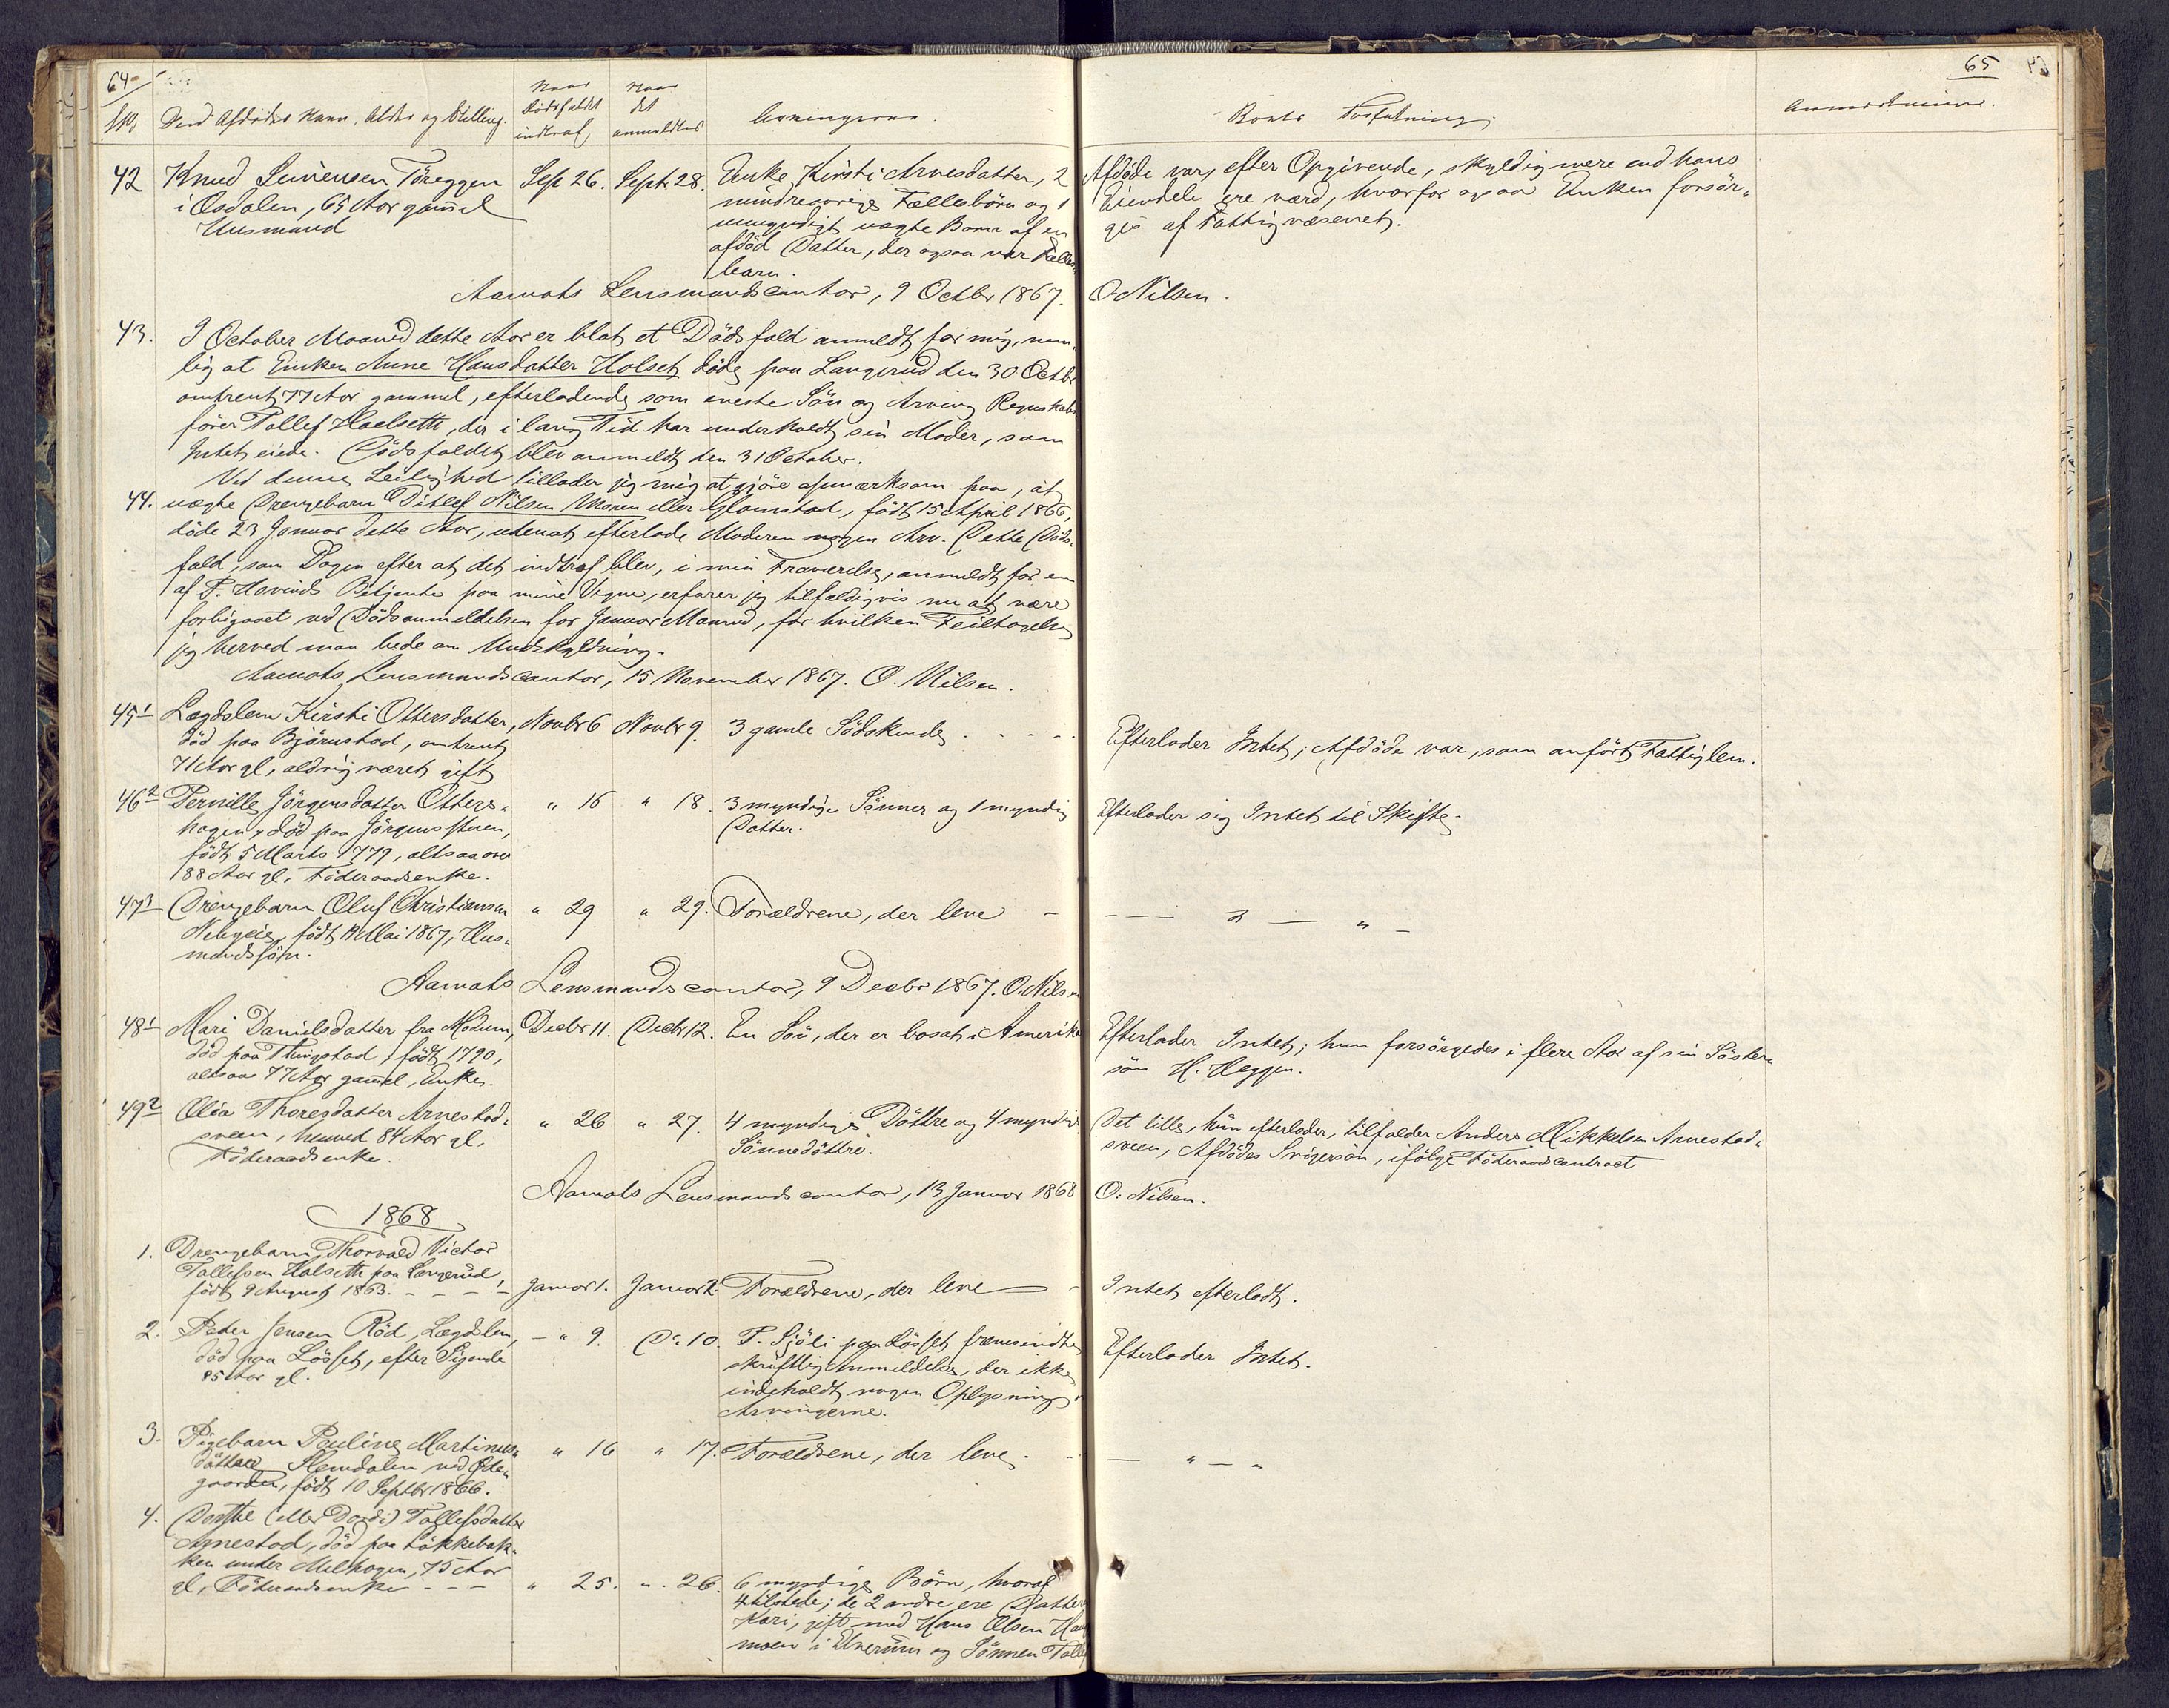 64
No
Den Afdødes Navn, Alder og Stilling.
Naar Dødsfaldet indtraf
Naar det anmeldtes
Arvingerne.
42 Knud Töreggen
i Osdalen, 65 Aar gam̄el
Husmand
Sept 26. Septr 28.
Enke Kirsti Arnesdatter, 2
mindreaarige Fællesbörn og 1
umyndigt uægte Barn af en
afdöd Datter, der ogsaa var Fælles
barn.
Aamots Lensmandscontor, 9 Octbr 1867.
43. I October Maaned dette Aar er blot et Dödsfald anmeldt for mig, nem-
lig at Enken Anne Hansdatter Holset döde paa Langerud den 30 Octbr
omtrent 77 Aar gammel, efterladende som eneste Sön og Arving Regnskabs
förer Tollef Haelseth, der i lang Tid har underholdt sin Moder, som
Intet eiede. Dödsfaldet blev anmeldt den 31 October.
Ved denne Leilighed tillader jeg mig at gjöre opmærksom paa, at
44. uægte Drengebarn Ditlef Nilsen Moren eller Glomstad, födt 15 April 1866,
döde 23 Januar dette Aar, uden at efterlade Moderen nogen Arv. Dette Döds-
fald, som Dagen efter at det indtraf blev, i min Fraværelse, anmeldt for en
af P. Hovinds Betjente paa mine Vegne, erfarer jeg tilfældigvis nu at være
forbigaaet ved Dödsanmeldelsen for Januar Maaned, for hvilken Feiltagelse
jeg herved maa bede om Undskyldning.
Aamots Lensmandscontor, 15 November 1867. O. Nilsen.
45 1 Lægdslem Kirsti Ottersdatter,
död paa Björnstad, omtrent
71 Aar gl, aldrig været gift
Novbr 6 Novbr 9. 3 gamle Södskende
46 2 Pernille Jörgensdatter Otters-
hagen, död paa Jörgensstuen,
födt 5 Marts 1779, altsaa over
88 Aar gl, Föderaadsenke.
" 16 " 18. 3 myndige Sönner og 1 myndig
Datter.
47 3 Drengebarn Oluf Christiansen
födt 14 Mai 1867, Hus-
mandssön.
" 29 " 29. Forældrene, der leve
Aamots Lensmandscontor, 9 Decbr 1867. O. Nilsen
48 1 Mari Danielsdatter fra Modum,
död paa Thingstad, födt 1790,
altsaa 77 Aar gam̄el, Enke.
Decbr 11. Decbr 12. En Sön, der er bosat i Amerika
49 2 Olea Thoresdatter Arnestad-
sveen, henved 84 Aar gl,
Föderaadsenke.
" 26 " 27. 4 myndige Döttre og 4 myndige
Sönnedöttre.
Aamots Lensmandscontor, 13 Januar 1868
1868
1. Drengebarn Thorvald Victor
Tollefsen Halseth paa Langerud,
födt 9 August 1863.
Januar 1. Januar 2. Forældrene, der leve
2. Peder Jensen Röd, Lægdslem,
död paa Lösset, efter Sigende
85 Aar gl.
" 9. Do 10. P. Sjöli paa Lösset fremsendte
skriftlig Anmeldelse, der ikke
indeholdt nogen Oplysning
Arvingerne.
3. Pigebarn Pauline Martinus-
datter Stemdalen ved
gaarden, födt 10 Septbr 1866.
" 16 " 17. Forældrene, der leve.
4. Dorthe (eller Dordi) Tollefsdatter
Arnestad, död paa Lökkebak-
ken under Melhagen, 75 Aar
gl, Föderaadsenke
" 25. " 26. 6 myndige Börn, hvoraf
4 tilstede; de 2 andre ere Datter
Kari, gift med Hans Olsen
moen i Elverum og Sönnen
65
Boets Forfatning
Anmærkninger.
Afdöde var, efter Opgivende, skyldig mere end hans
Eiendele ere værd, hvorfor ogsaa Enken forsör-
ges af Fattigvæsenet.
O. Nilsen.
Efterlader Intet; Afdöde var, som anfört, Fattiglem.
Efterlader sig Intet til Skifte.
— " — " —
Efterlader Intet; hun forsörgedes i flere Aar af sin Söster-
sön H. Heggen.
Det lille, hun efterlader, tilfalder Anders Mikkelsen Arnestad-
sveen, Afdödes Svigersön, ifölge Föderaadscontract
O. Nilsen.
Intet efterladt.
Efterlader Intet.
— " — "